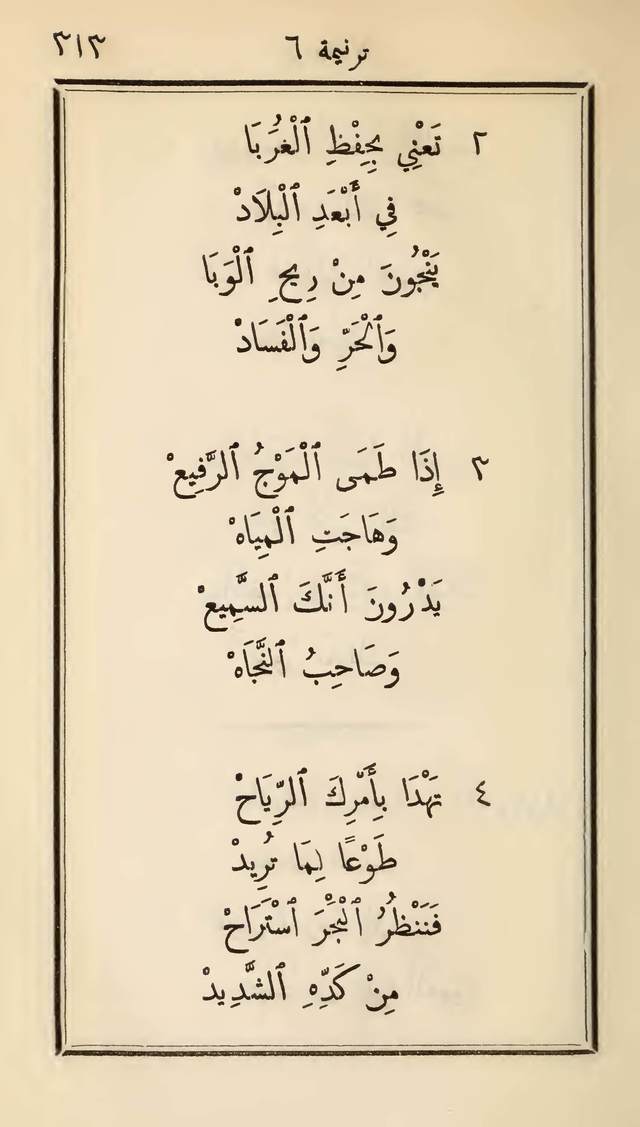 ترنيمة ٦ ٣١٣
٢ تَعْنِي بِحِفْظِ ٱلْغُرَبَا
فِي أَبْعَدِ ٱلْبِلَادْ
يَنْجُونَ مِنْ رِيحِ ٱلْوَبَا
وَٱلْحَرِّ وَٱلْفَسَادْ
٣ إِذَا طَمَى ٱلْمَوْجُ ٱلرَّفِيعْ
وَهَاجَتِ ٱلْمِيَاهْ
يَدْرُونَ أَنَّكَ ٱلسَّمِيعْ
وَصَاحِبُ ٱلنَّجَاهْ
٤ تَهْدَا بِأَمْرِكَ ٱلرِّيَاحْ
طَوْعًا لِمَا تُرِيدْ
فَنَنْظُرُ ٱلْبَحْرَ ٱسْتَرَاحْ
مِنْ كَدِّهِ ٱلشَّدِيدْ